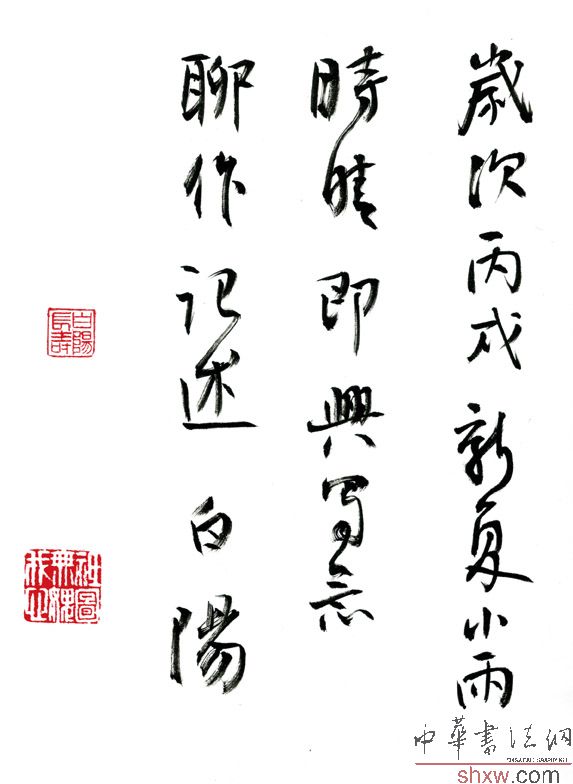 歲次丙戌新夏小雨
時晴即興寫意
聊作記述 白陽
白陽長壽
中華書法網
shxw.com